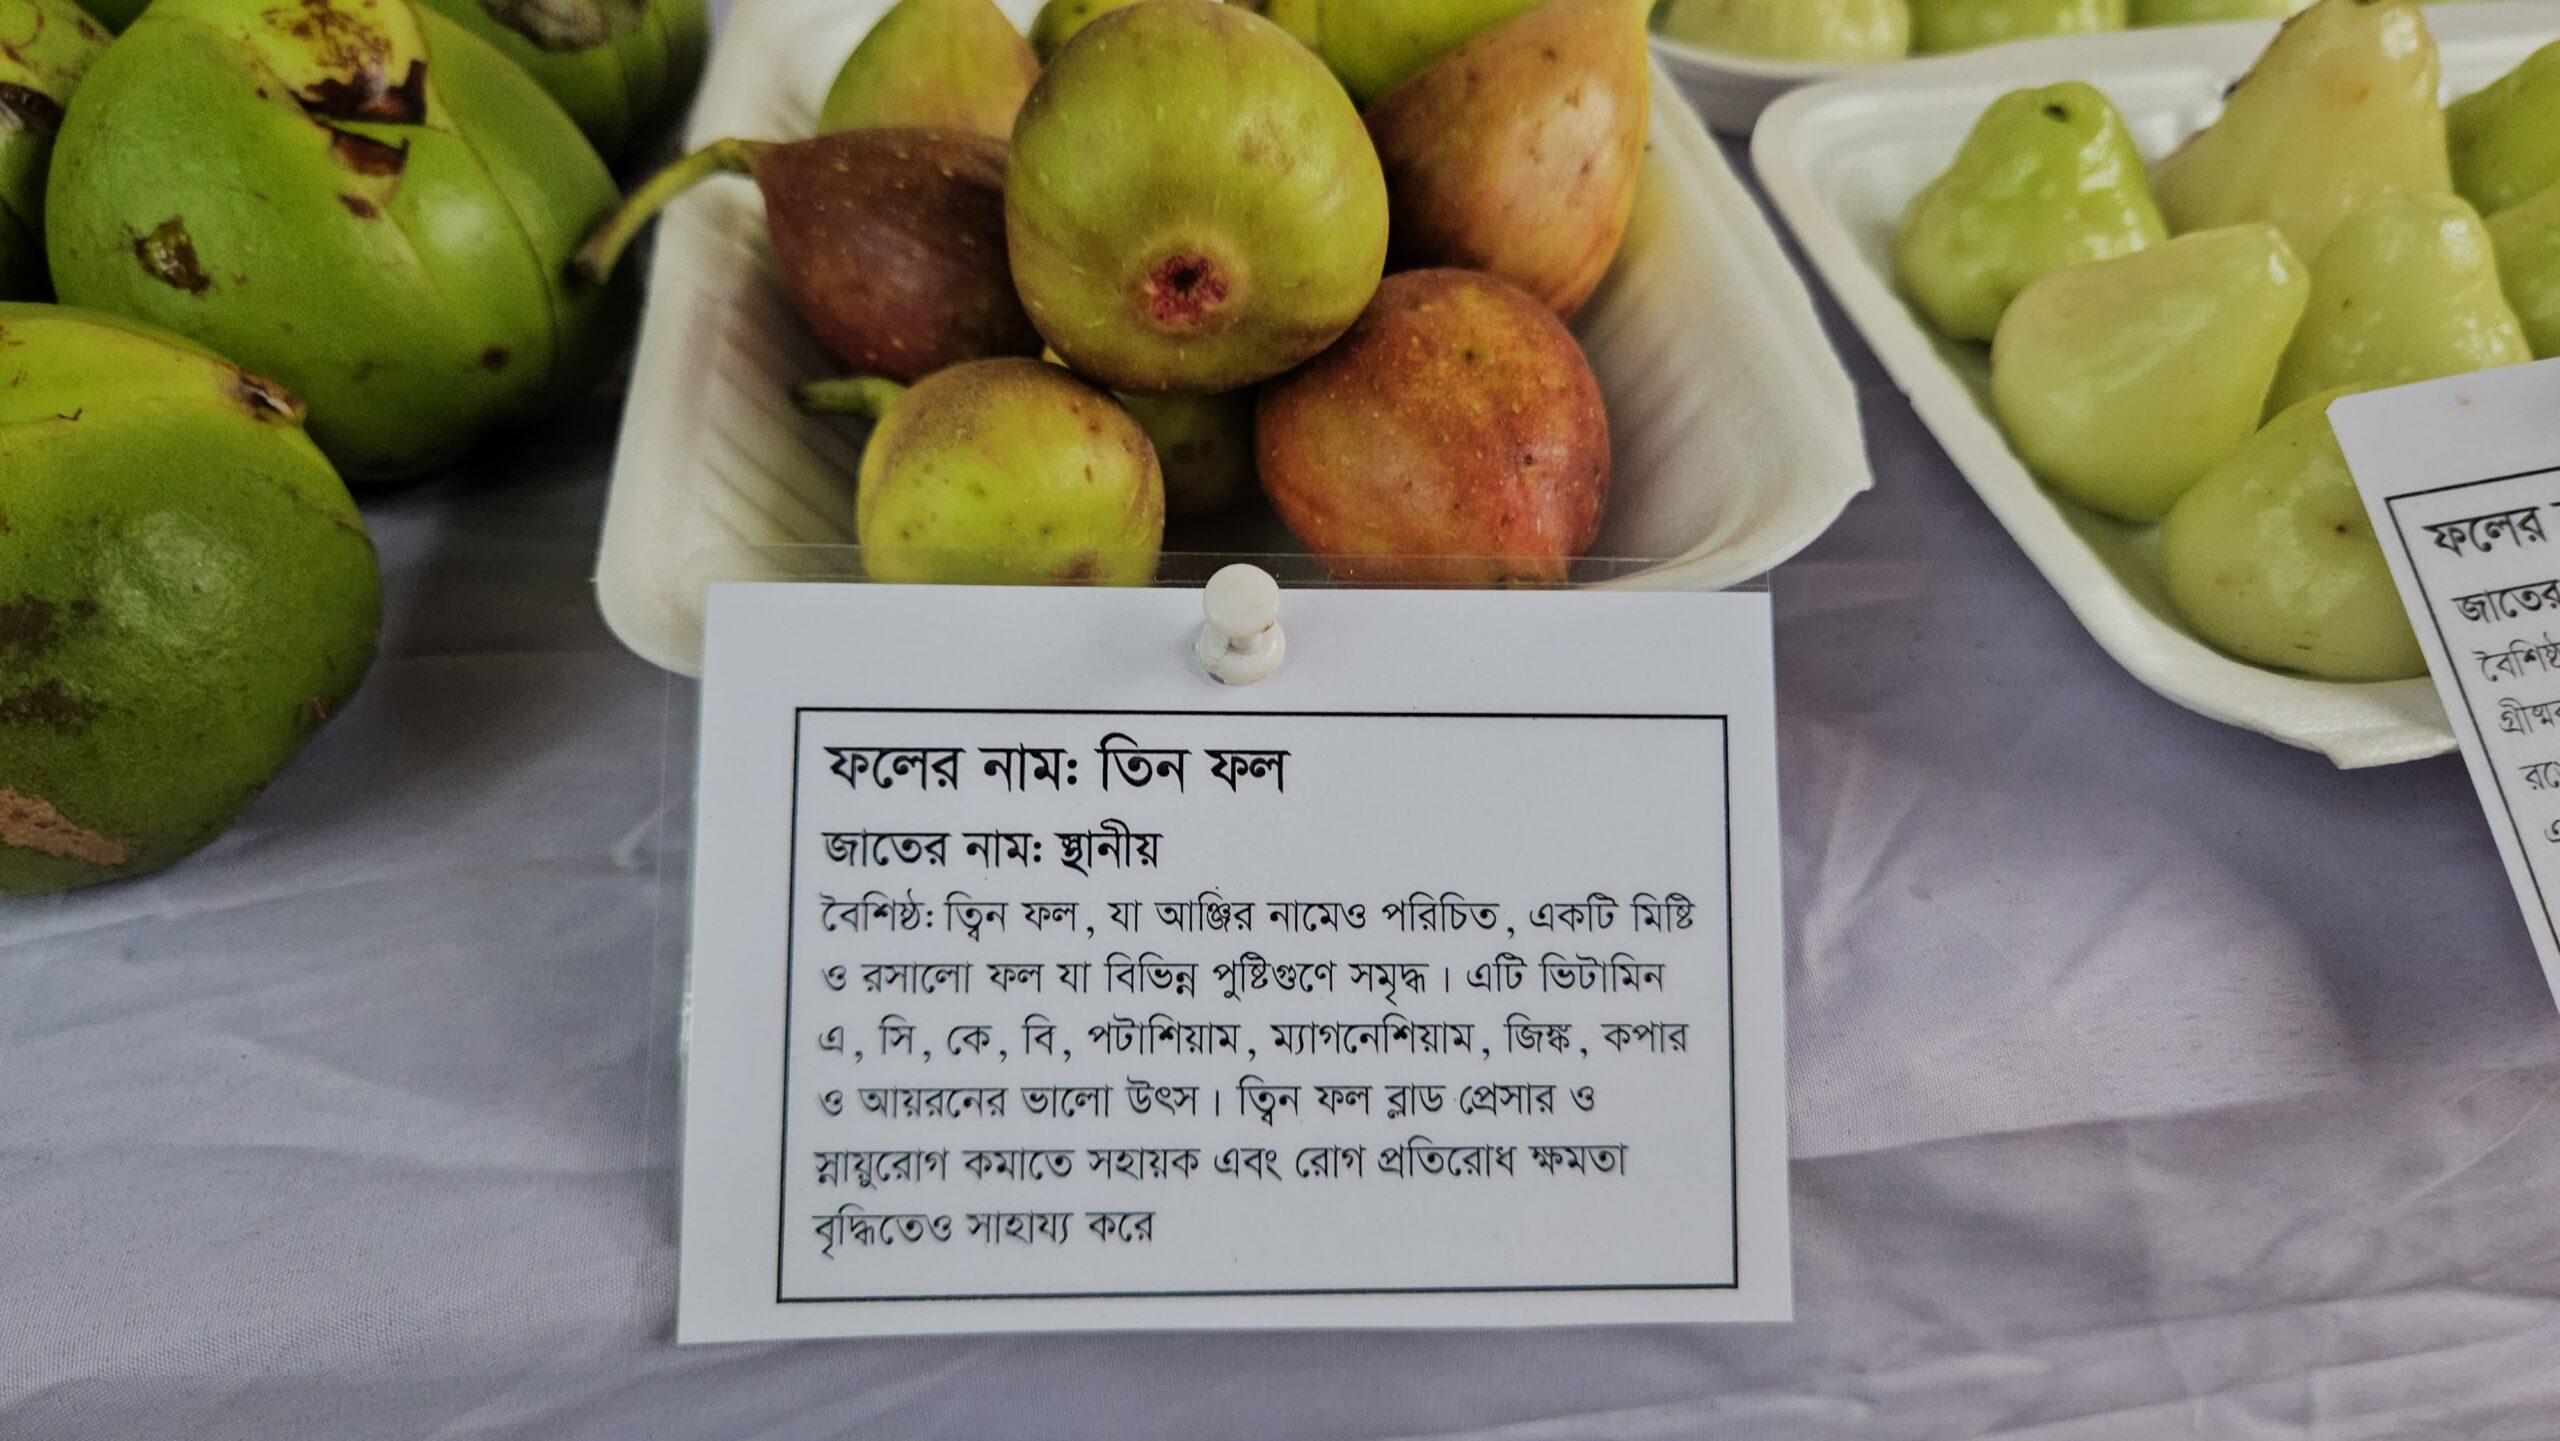 ফলের নাম: তিন ফল
জাতের নাম: স্থানীয়
বৈশিষ্ঠ: ত্বিন ফল, যা আঞ্জির নামেও পরিচিত, একটি মিষ্টি
ও রসালো ফল যা বিভিন্ন পুষ্টিগুণে সমৃদ্ধ। এটি ভিটামিন
এ, সি, কে, বি, পটাশিয়াম, ম্যাগনেশিয়াম, জিঙ্ক, কপার
ও আয়রনের ভালো উৎস। ত্বিন ফল ব্লাড প্রেসার ও
স্নায়ুরোগ কমাতে সহায়ক এবং রোগ প্রতিরোধ ক্ষমতা
বৃদ্ধিতেও সাহায্য করে
ফলের
জাতের